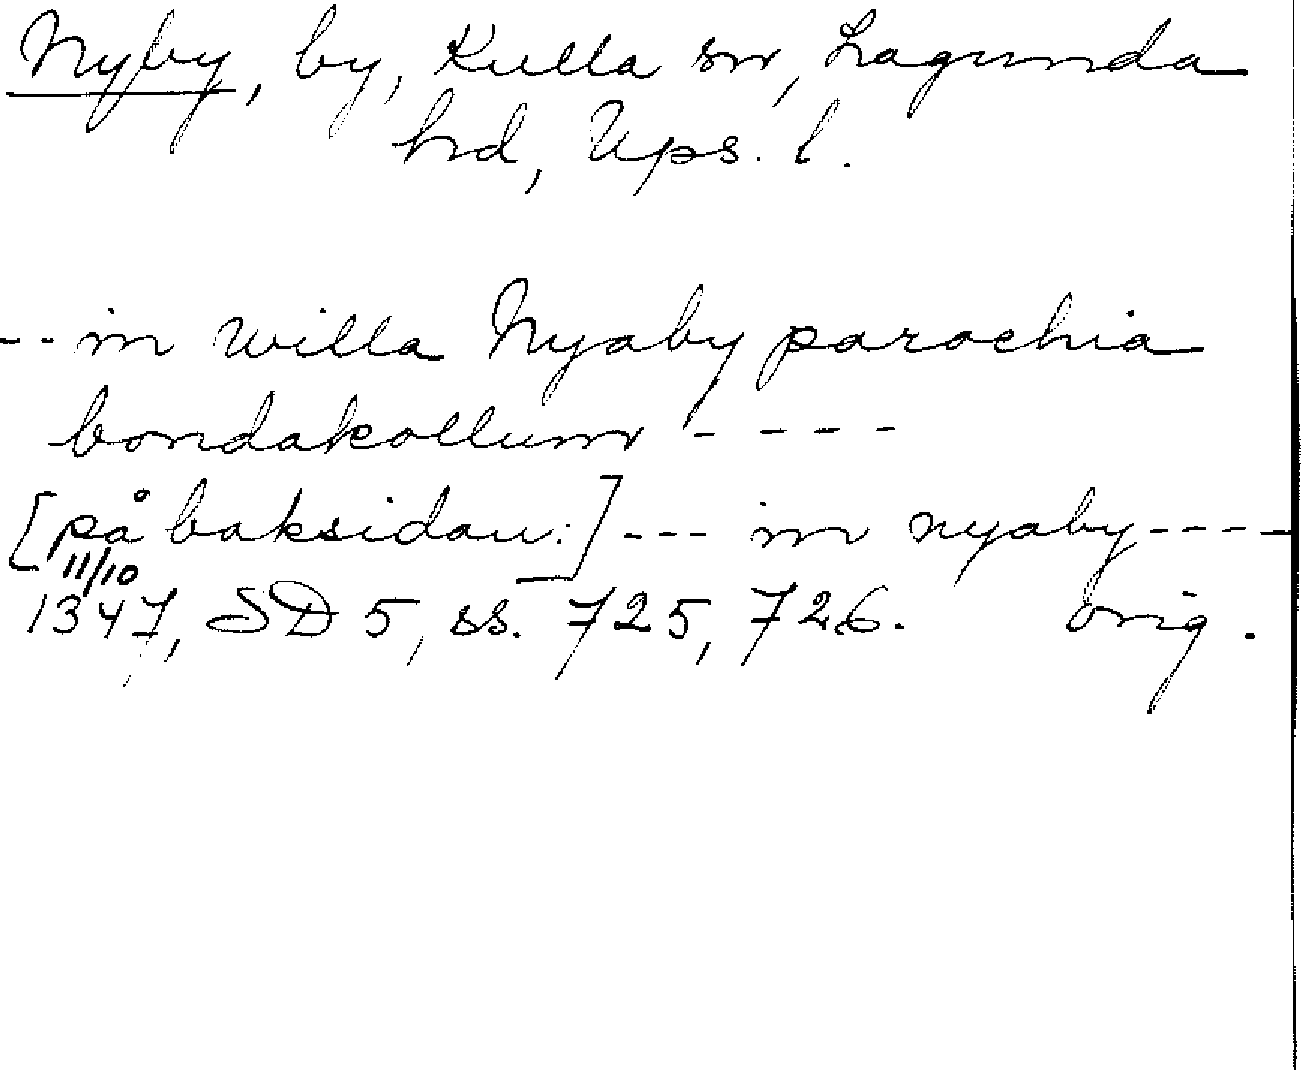 Nyby, by, Kulla sn, Lagunda
hd, Ups. l.
-- in willa Nyaby parochia
bondakollum ----
[på baksidan:] --- in nyaby ----
11/10
1347, SD 5, ss. 725, 726. orig.